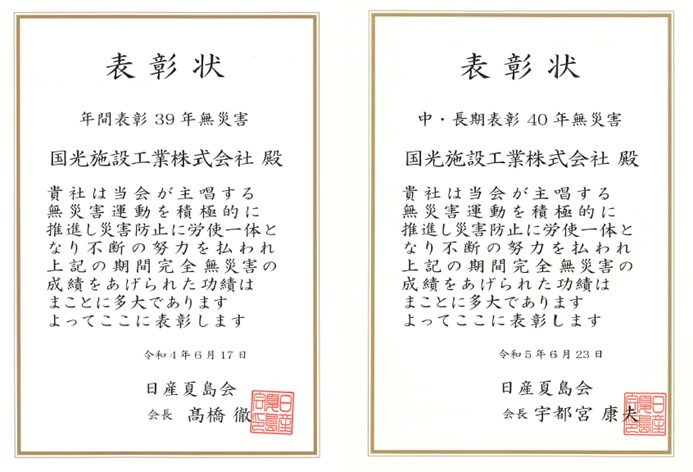 表彰状
年間表彰 39 年無災害
国光施設工業株式会社 殿
貴社は当会が主唱する
無災害運動を積極的に
推進し災害防止に労使一体と
なり不断の努力を払われ
上記の期間完全無災害の
成績をあげられた功績は
まことに多大であります
よってここに表彰します
令和4年6月17日
日産夏島会
会長 髙橋 徹
日産夏島会印
表彰状
中・長期表彰 40 年無災害
国光施設工業株式会社 殿
貴社は当会が主唱する
無災害運動を積極的に
推進し災害防止に労使一体と
なり不断の努力を払われ
上記の期間完全無災害の
成績をあげられた功績は
まことに多大であります
よってここに表彰します
令和5年6月23日
日産夏島会
会長 宇都宮 康夫
日産夏島会印